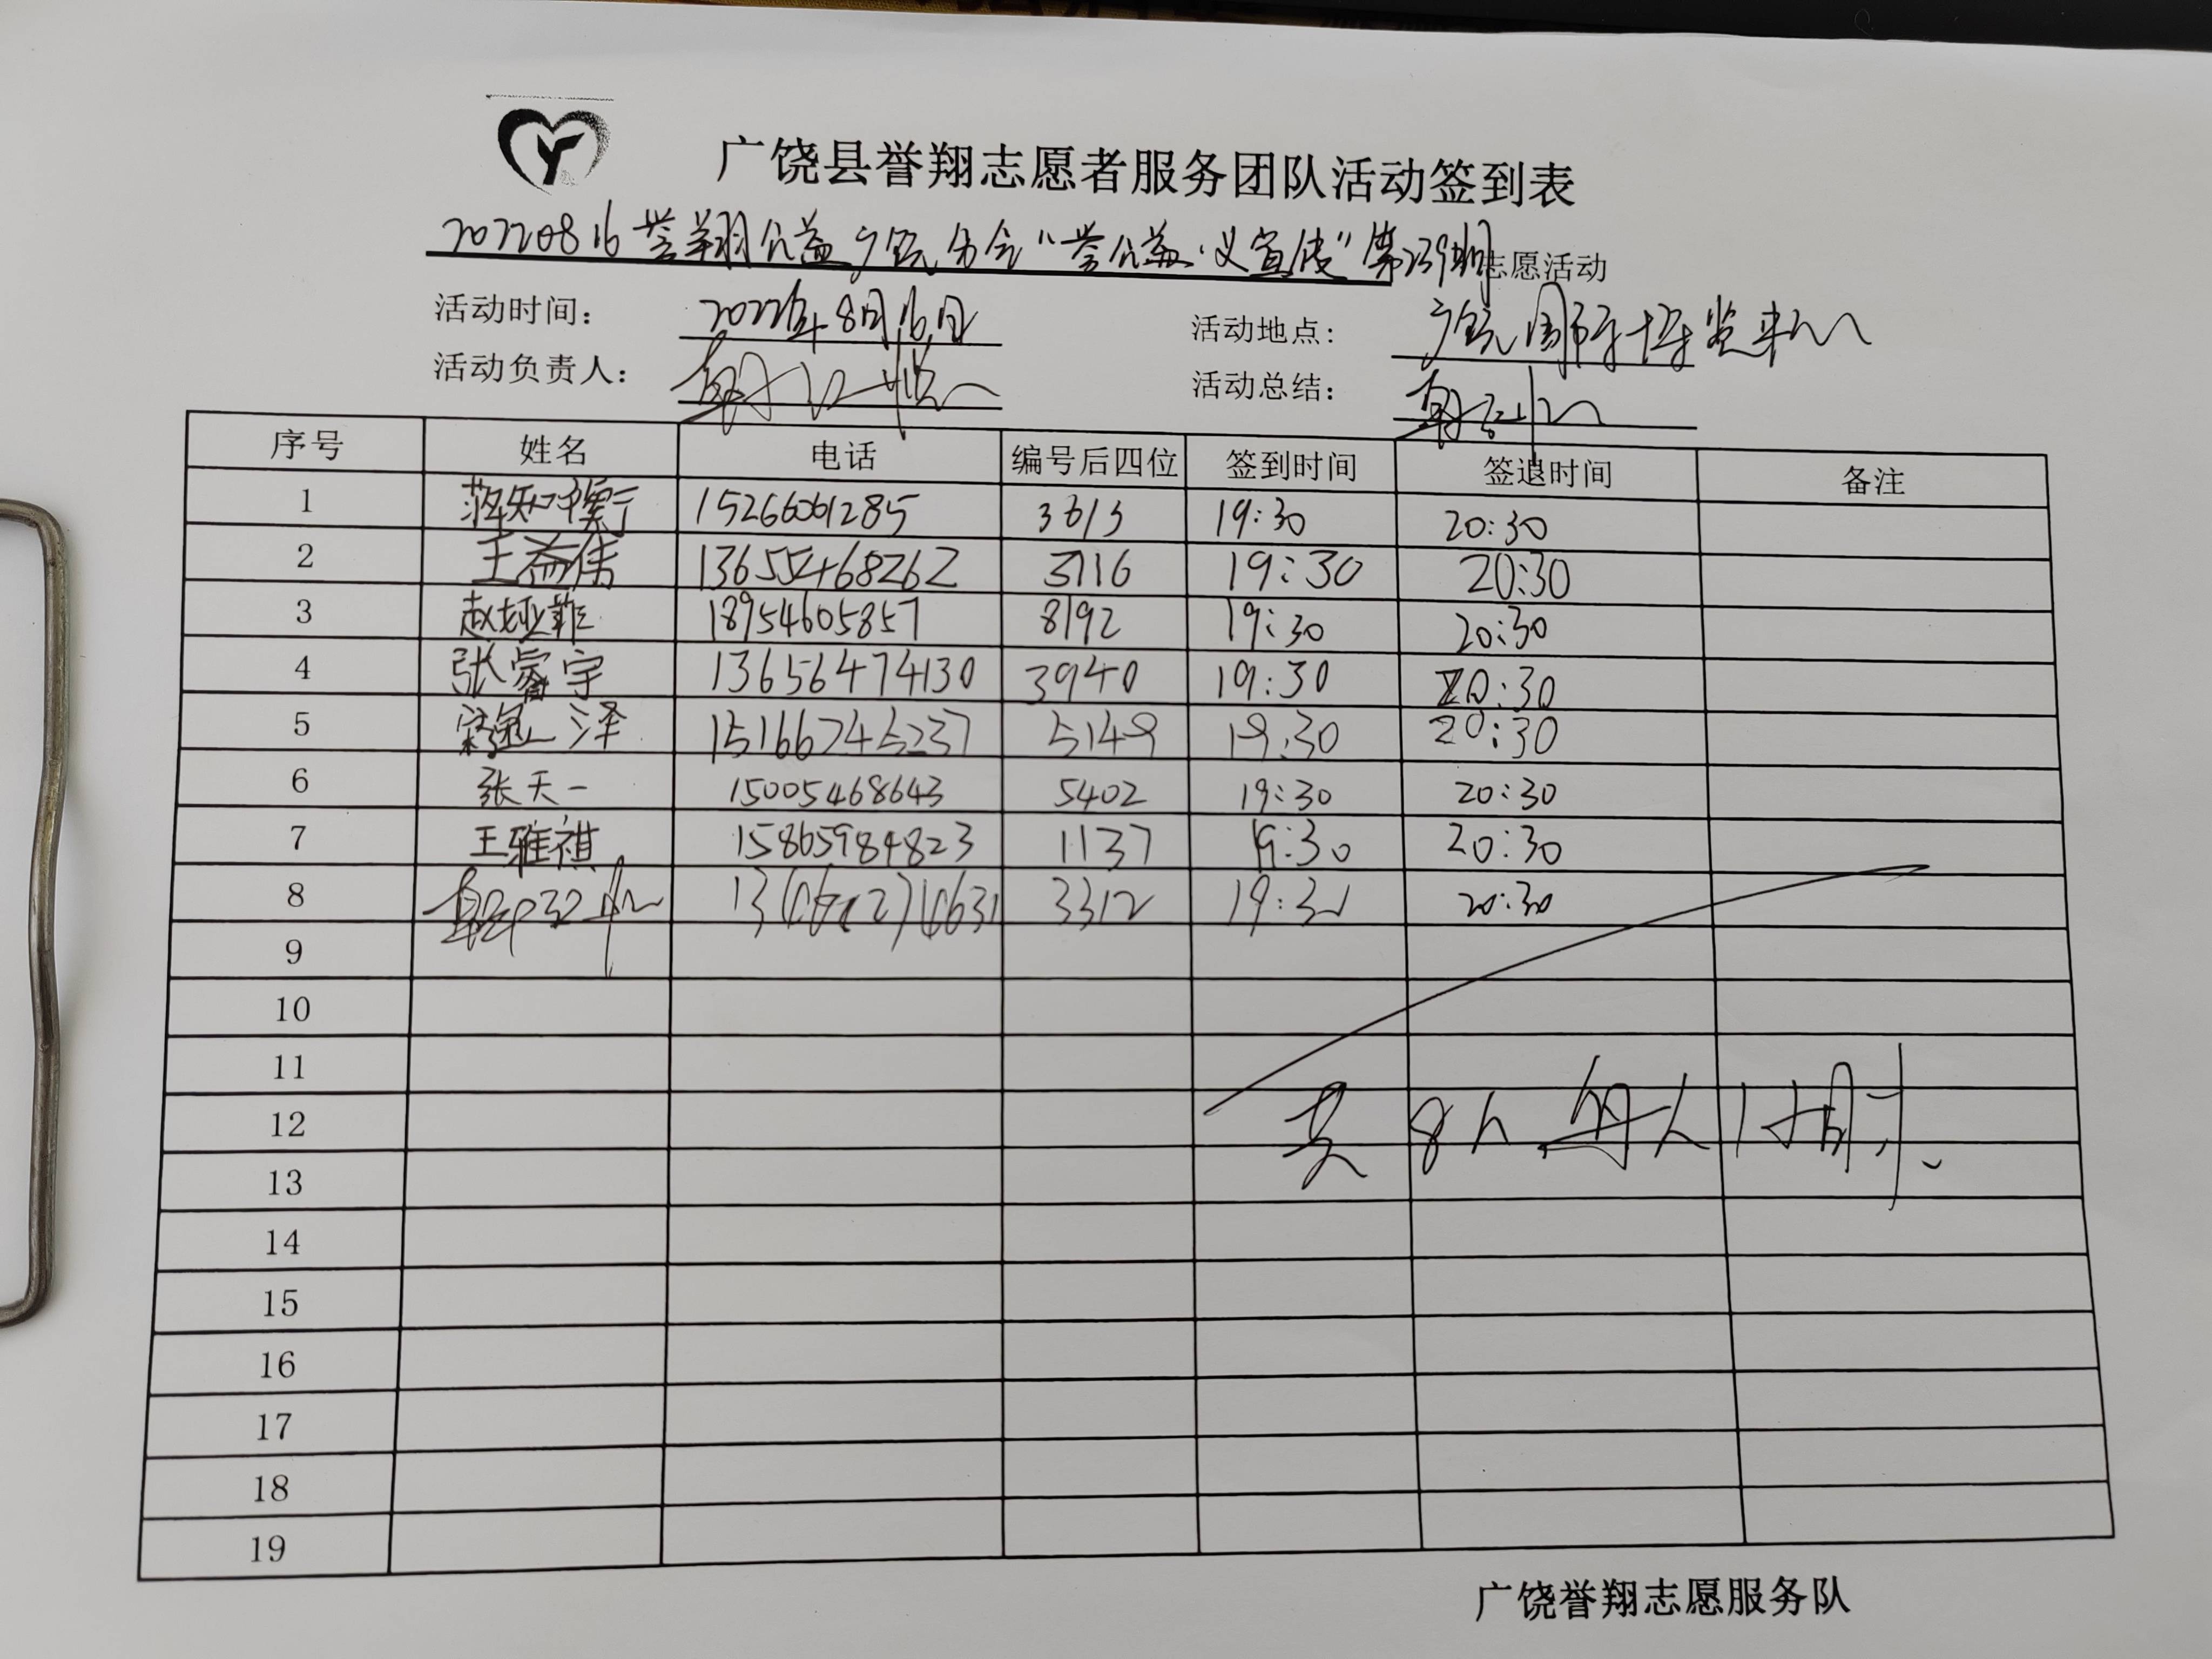 广饶县誉翔志愿者服务团队活动签到表
20220816 誉翔公益广饶分会“誉公益·义宣传”第239期志愿活动
活动时间： 2022年8月16日 活动地点： 广饶国际博览中心
活动负责人： 活动总结：
序号 姓名 电话 编号后四位 签到时间 签退时间 备注
1 15266061285 3613 19:30 20:30
2 王益伟 13655468262 3116 19:30 20:30
3 赵娅菲 18954605857 8192 19:30 20:30
4 张睿宇 13656474130 3940 19:30 20:30
5 泽 15166745237 5149 19:30 20:30
6 张天一 15005468643 5402 19:30 20:30
7 王雅祺 15865984823 1137 19:30 20:30
8 3312 19:30 20:30
9
10
11
12
共8人 每人1小时.
13
14
15
16
17
18
19
广饶誉翔志愿服务队